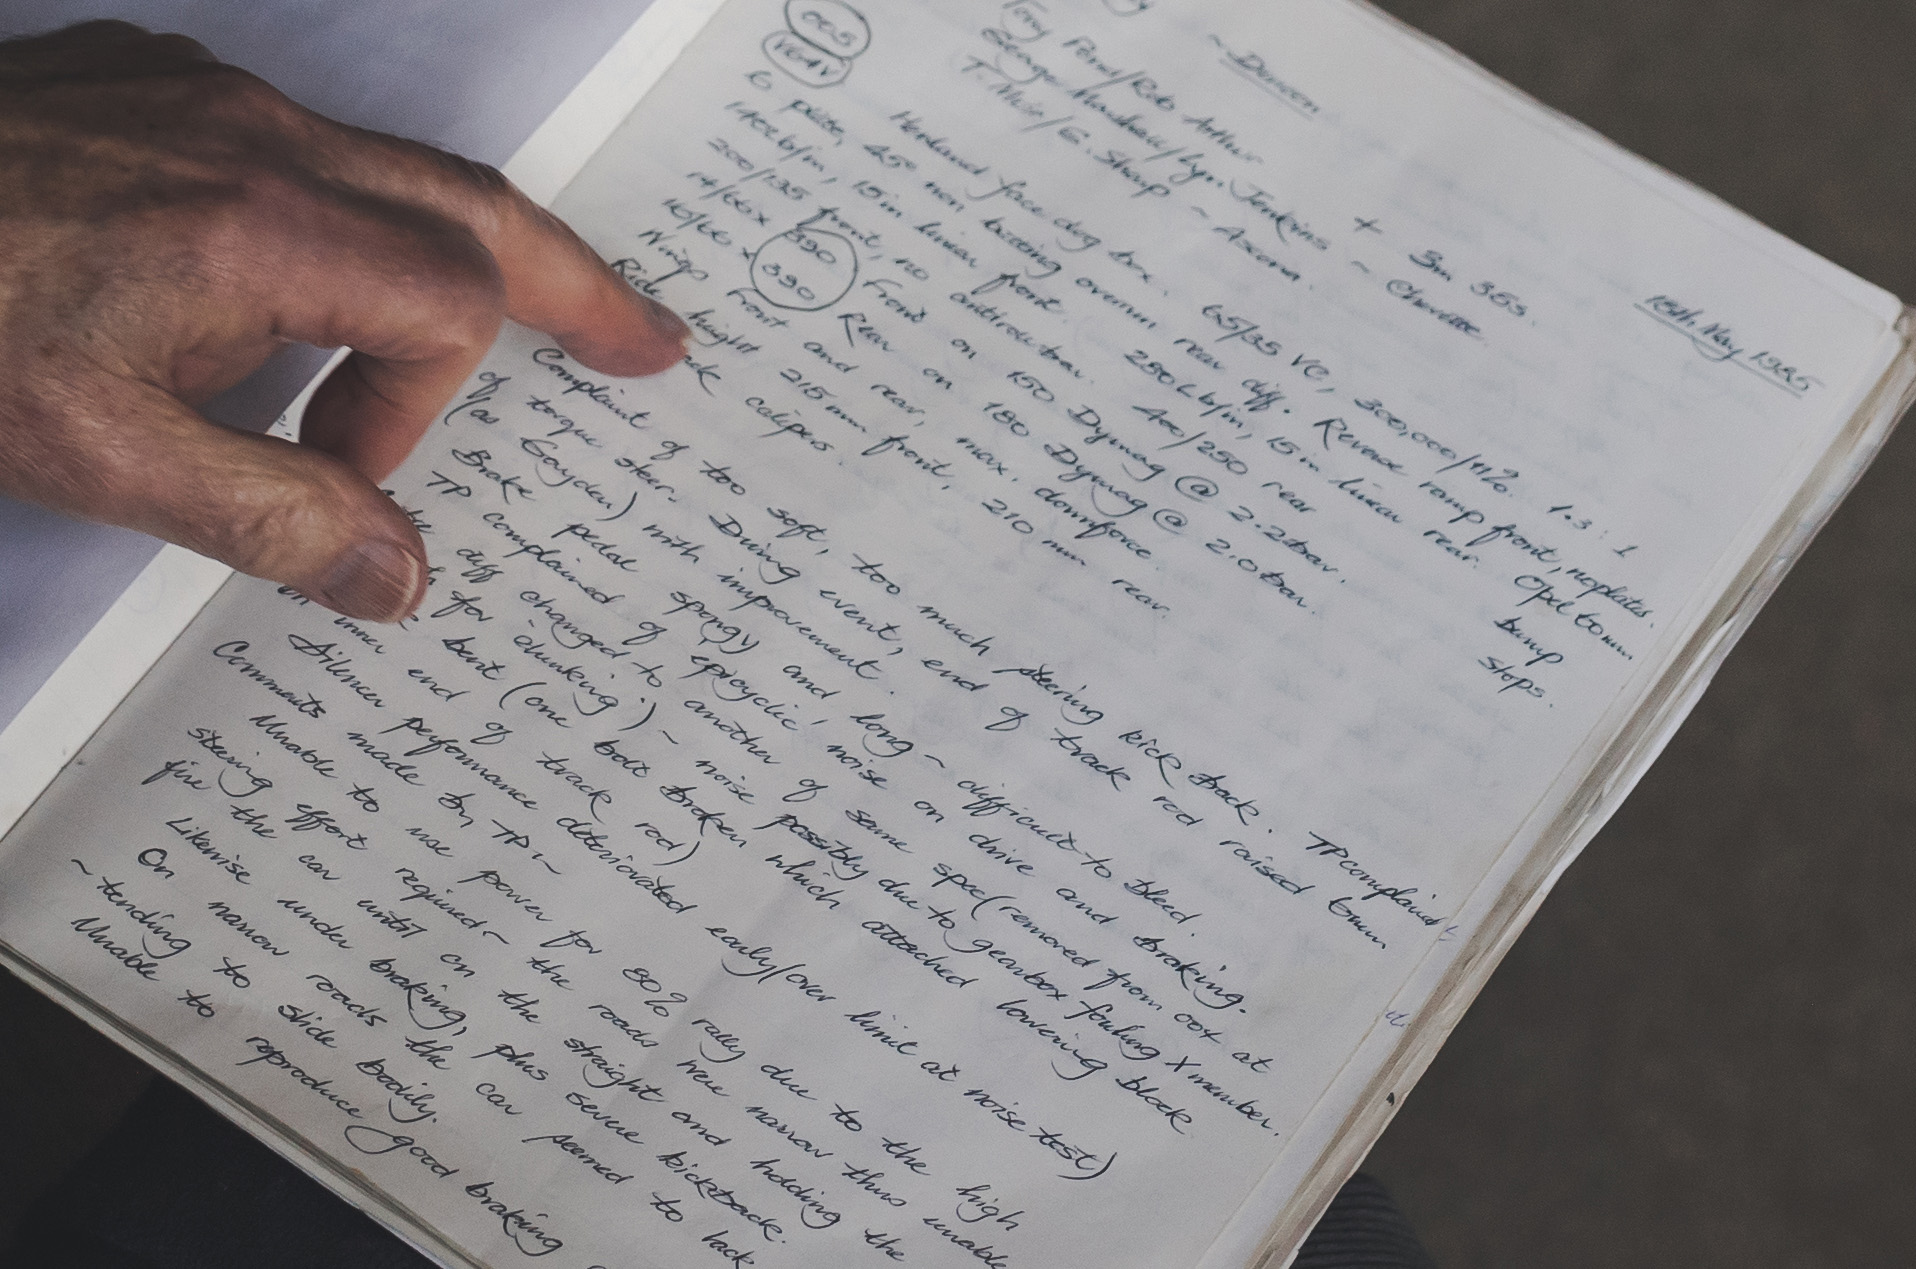 ~ Dunoon
18th May 1985
005
VGAV
Tony Pond/Rob Arthur + 3m 36s.
George Marshall/Lyn Jenkins ~ Chevette
T. Muir/G. Sharp ~ Ascona.
Hewland face dog box. 65/35 VC, 300,000/41%. 1.3 : 1
6 plate, 45° non butting overrun rear diff. Reverse ramp front, no plates.
140 lb/in, 15 in linear front. 280 lb/in, 15 in linear rear. Opel 60mm bump stops.
200/135 front, no antirollbar. 400/250 rear
14/66 x 390 Front on 150 Dymag @ 2.2 bar.
16/66 x 390 Rear on 180 Dymag @ 2.0 bar.
Wings front and rear, max. downforce.
Ride height 215 mm front, 210 mm rear.
calipers.
Complaint of too soft, too much steering kick back. TP complained
of torque steer. During event, end of track rod raised 6mm
(as Gaydon) with improvement.
Brake pedal spongy and long ~ difficult to bleed.
TP complained of epicyclic noise on drive and braking.
diff changed to another of same spec (removed from 00X at
for 'clunking') ~ noise possibly due to gearbox fouling X member.
bent (one bolt broken which attached lowering block
on inner end of track rod)
Silencer performance deteriorated early (over limit at noise test)
Comments made by TP ~
Unable to use power for 80% rally due to the high
steering effort required ~ the roads were narrow thus unable
fire the car until on the straight and holding the
Likewise under braking, plus severe kickback.
On narrow roads the car seemed to lack
~ tending to slide bodily.
Unable to reproduce good braking